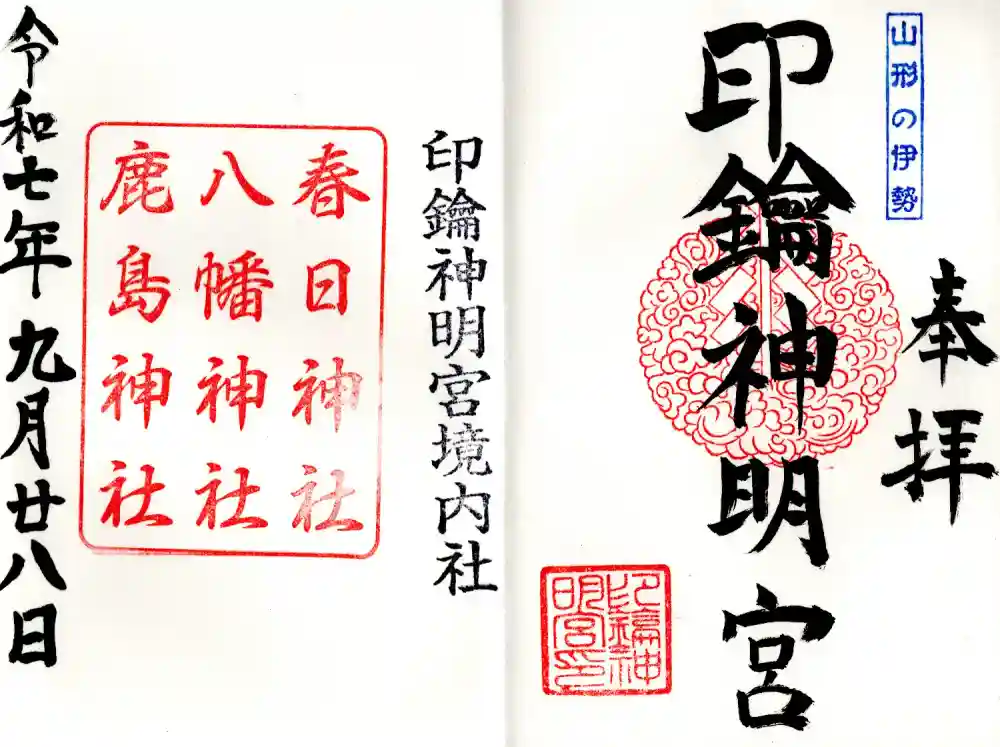 山形の伊勢
奉拝
印鑰神明宮
印鑰神明宮印
印鑰神明宮境内社
春日神社
八幡神社
鹿島神社
令和七年九月廿八日